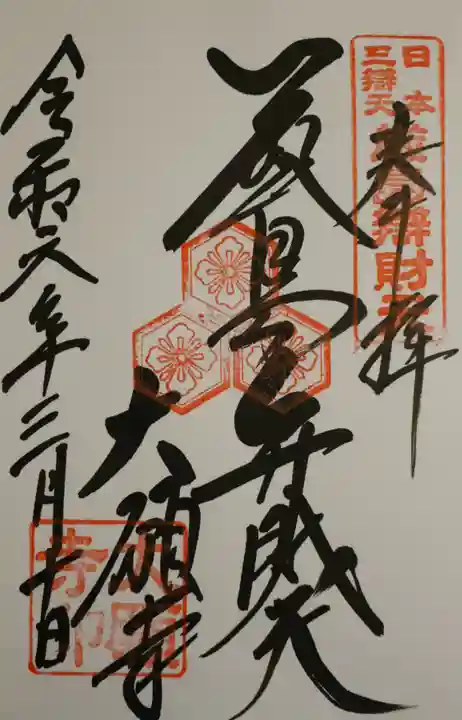 奉拝
日本三辯天
厳島辯財天
厳島弁財天
大願寺
令和六年三月十日
大願寺印